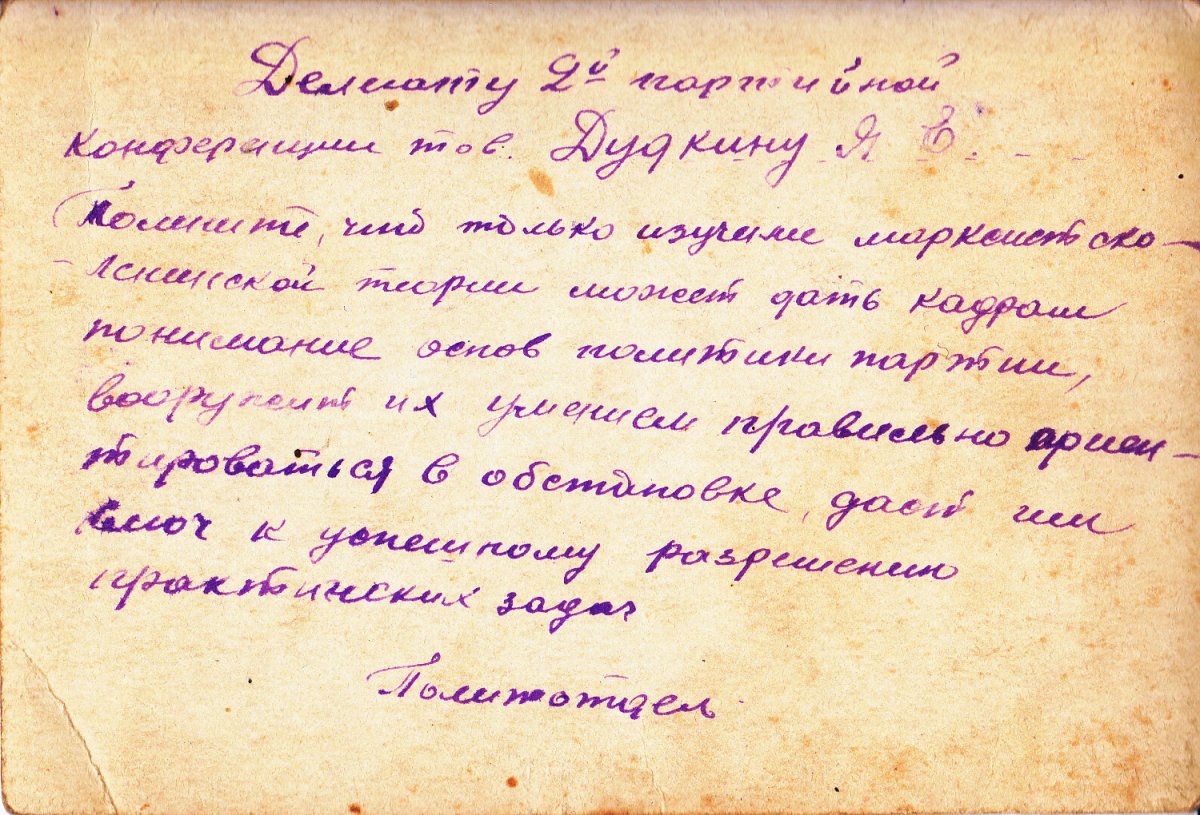 Делегату 2й партийной
конференции тов. Дудкину Я. Е.
Помните, что только изучение марксистско-
-ленинской теории может дать кадрам
понимание основ политики партии,
вооружит их умением правильно ориен-
тироваться в обстановке, даст им
ключ к успешному разрешению
практических задач
Политотдел